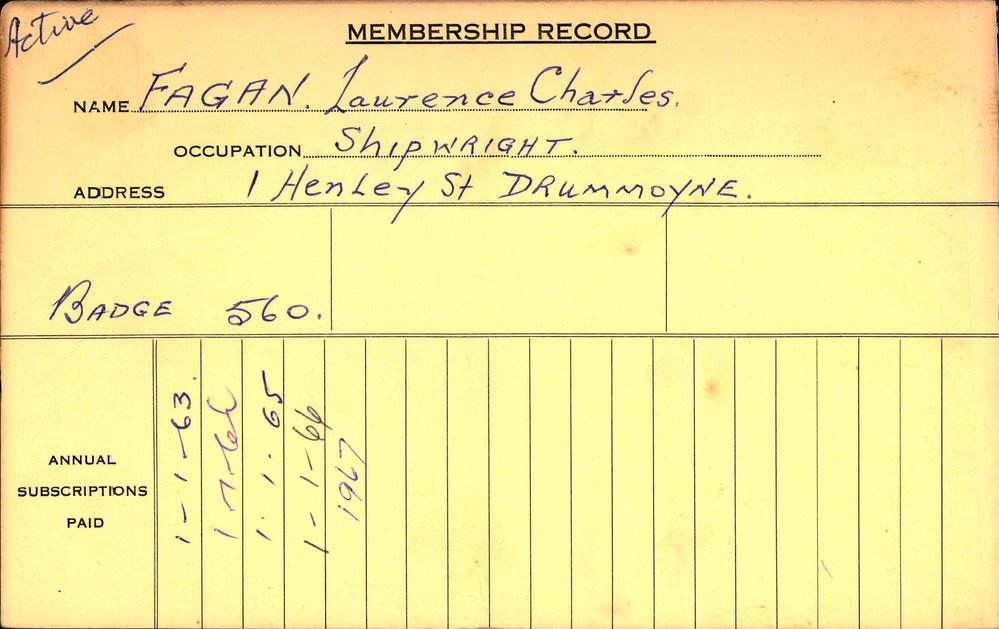 Active
MEMBERSHIP RECORD
NAME FAGAN. Laurence Charles.
OCCUPATION ShipWRIGHT.
ADDRESS 1 Henley St DRUMMOYNE.
BADGE 560.
ANNUAL
SUBSCRIPTIONS
PAID
1-1-63.
1. 1. 65
1-1-66
1967